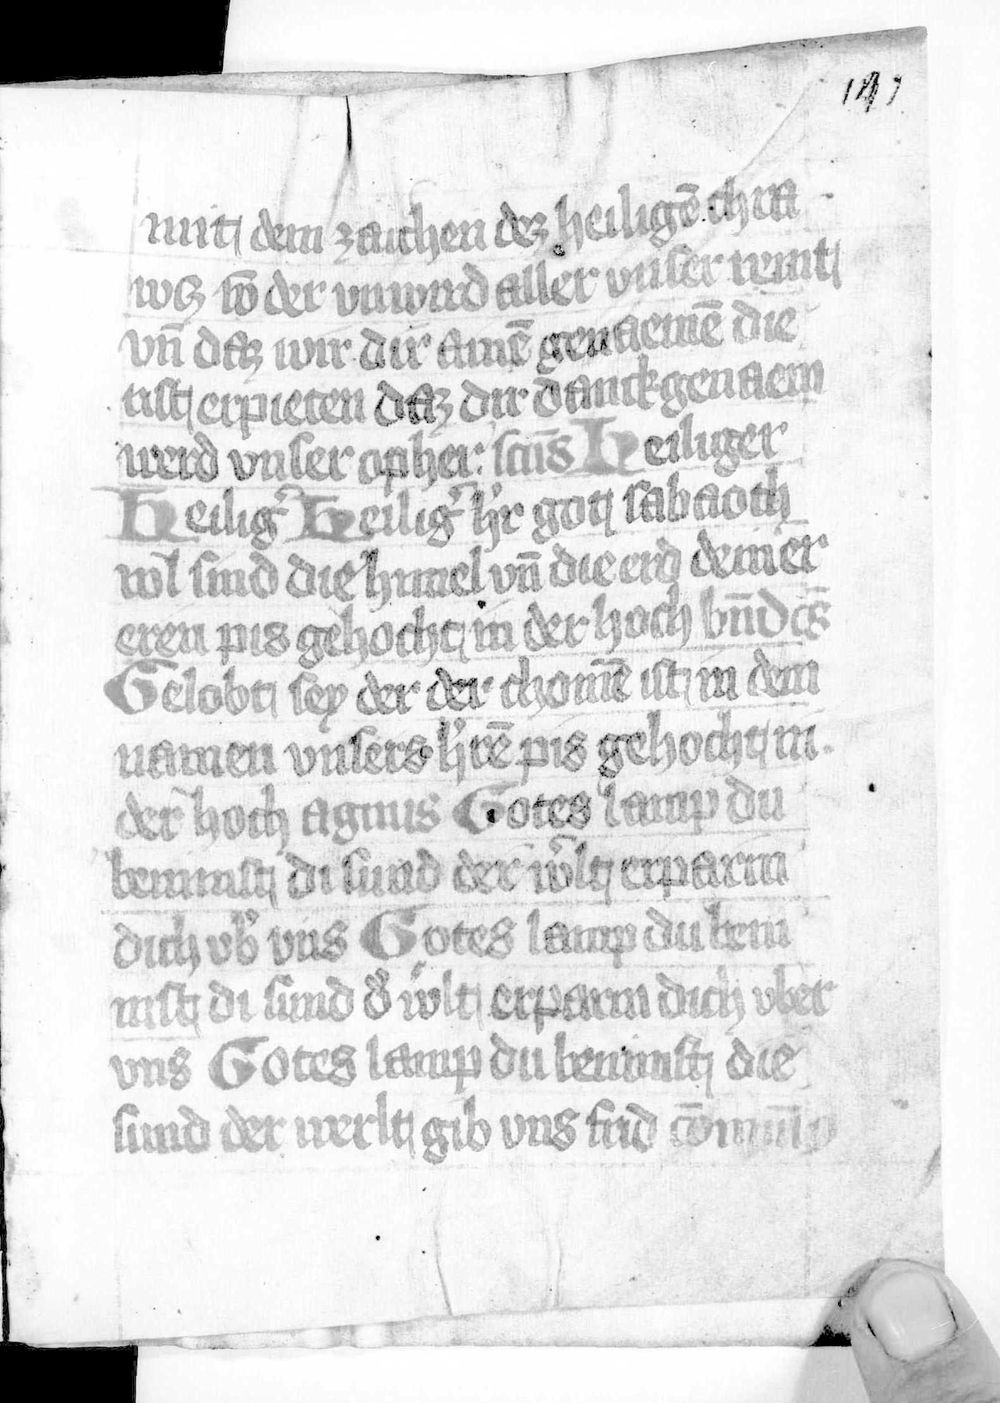 147
mit dem zaichen dez heiligē chra
wcz vō der vnwird aller vnser remt
vn̄ daz wir dir amē genaemē die
nst erpieten daz dir danckgenaem
werd vnser opher. sc̄us Heiliger
Heilig᷑ Heilig᷑ h᷑r got sabaoth
vol sind die himel vn̄ die erd deiner
eren pis gehocht in der hoch bn̄dcūs
Gelobt sey der der chomē ist in dem
namen vnsers h᷑rē pis gehocht in
der hoch agnus Gotes lamp du
benimst di sund der w᷑lt erparm
dich vb᷑ vns Gotes lamp du beni
mst di sund d᷑ w᷑lt erparm dich vber
vns Gotes lamp du benimst die
sund der werlt gib vns frid